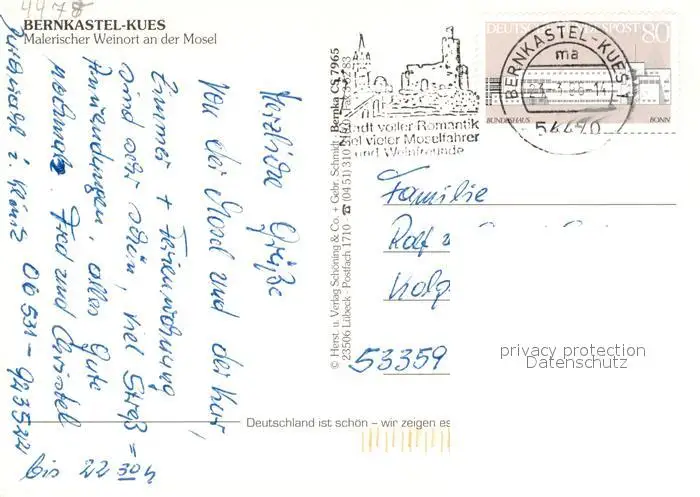 4478
BERNKASTEL-KUES
Malerischer Weinort an der Mosel
Herzliche Grüße
von der Mosel und der Kur,
Zimmer + Ferienwohnung
sind sehr schön, viel
Anwendungen, alles Gute
nochmals. Fred und Christel
06531-923522
bis 22 30 h
© Herst. u. Verlag Schöning & Co. + Gebr. Schmidt
23506 Lübeck · Postfach 1710 · ☎ (04 51) 310
Bernka CS 7965
Stadt voller Romantik
Ziel vieler Moselfahrer
und Weinfreunde
DEUTSCHE BUNDESPOST 80
BUNDESHAUS BONN
BERNKASTEL-KUES 1
ma
54470
Familie
Rolf
53359
privacy protection
Datenschutz
Deutschland ist schön – wir zeigen es